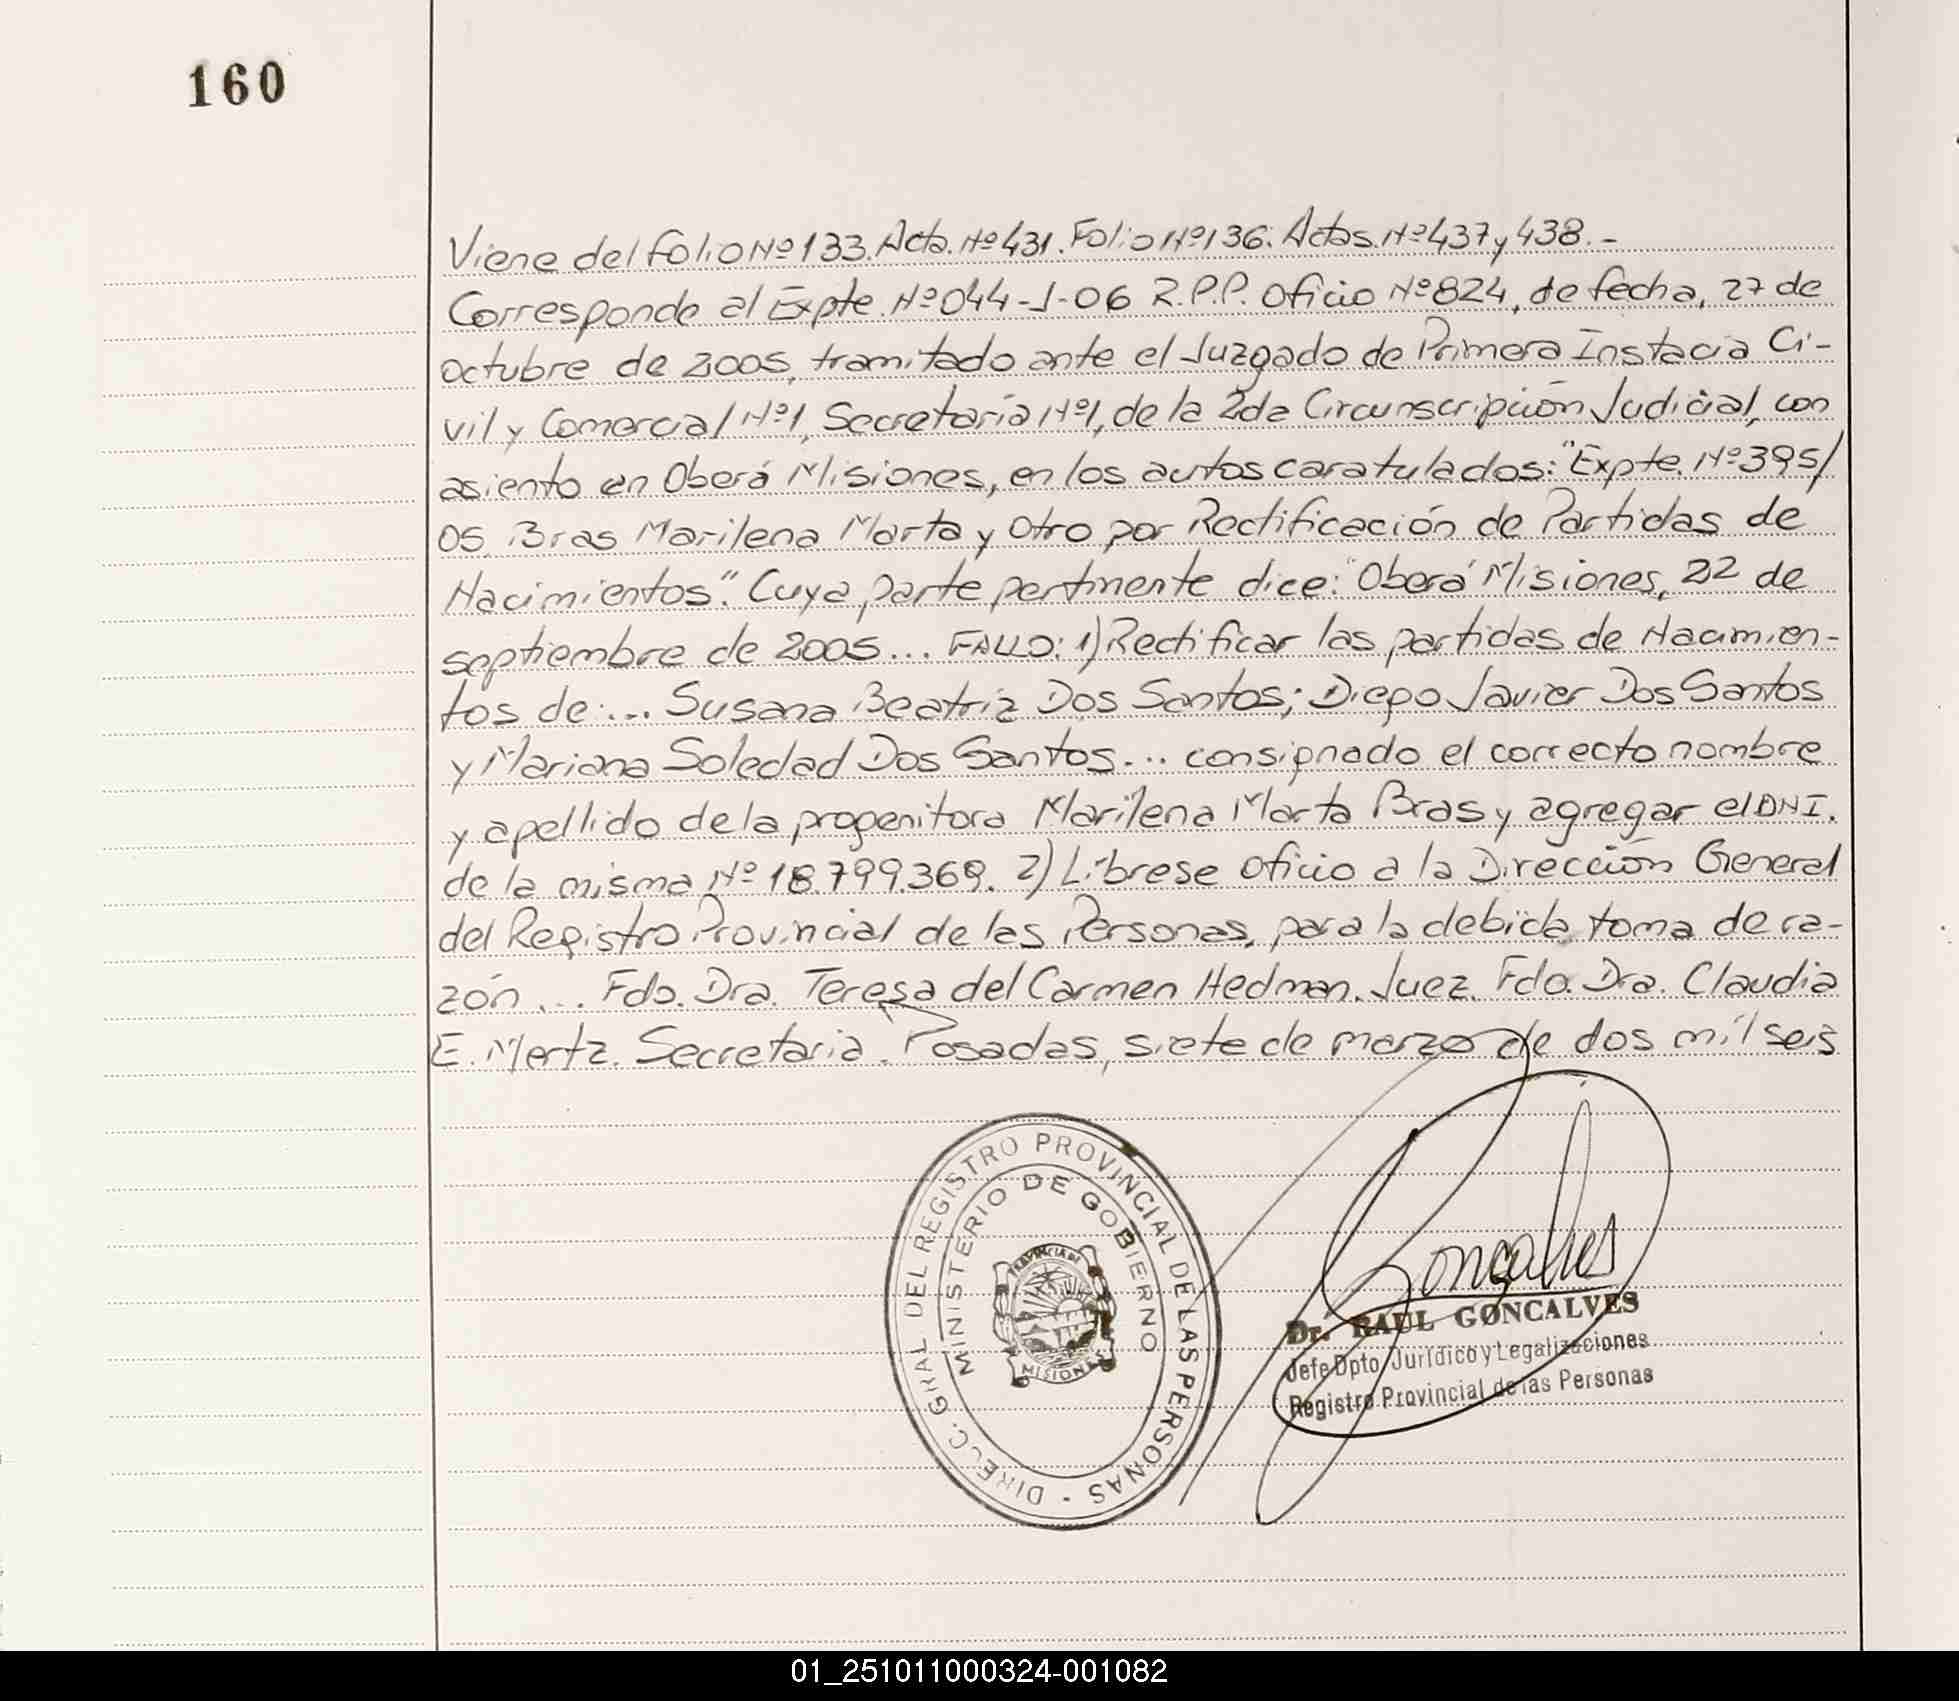 160
Viene del folio Nº 133. Acta. Nº 431. Folio Nº 136. Actas. Nº 437 y 438. -
Corresponde al Expte. Nº 044-J-06 R.P.P. Oficio Nº 824, de fecha, 27 de
octubre de 2005, tramitado ante el Juzgado de Primera Instacia Ci-
vil y Comercial Nº 1, Secretaría Nº 1, de la 2da Circunscripción Judicial, con
asiento en Oberá Misiones, en los autos caratulados: "Expte. Nº 395/
05 Bras Marilena Marta y Otro por Rectificación de Partidas de
Nacimientos". Cuya parte pertinente dice: "Oberá Misiones, 22 de
septiembre de 2005... FALLO: 1) Rectificar las partidas de Nacimien-
tos de:... Susana Beatriz Dos Santos; Diego Javier Dos Santos
y Mariana Soledad Dos Santos... consignado el correcto nombre
y apellido de la progenitora Marilena Marta Bras y agregar el DNI.
de la misma Nº 18.799.369. 2) Líbrese oficio a la Dirección General
del Registro Provincial de las Personas, para la debida toma de ra-
zón... Fdo. Dra. Teresa del Carmen Hedman. Juez. Fdo. Dra. Claudia
E. Mertz. Secretaria. Posadas, siete de marzo de dos mil seis
DIRECC. GRAL DEL REGISTRO PROVINCIAL DE LAS PERSONAS -
MINISTERIO DE GOBIERNO
PROVINCIA DE
MISIONES
Goncalves
Dr. RAUL GONCALVES
Jefe Dpto. Jurídico y Legalizaciones
Registro Provincial de las Personas
01_251011000324-001082